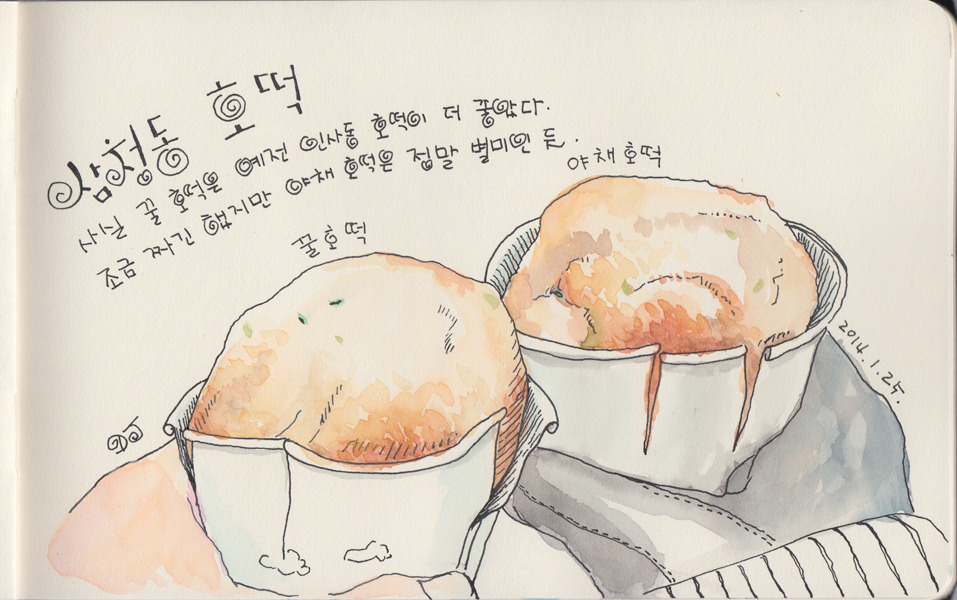 삼청동 호떡
사실 꿀 호떡은 예전 인사동 호떡이 더 좋았다.
조금 짜긴 했지만 야채 호떡은 정말 별미인 듯.
꿀호떡
야채호떡
2014.1.25.
DJ